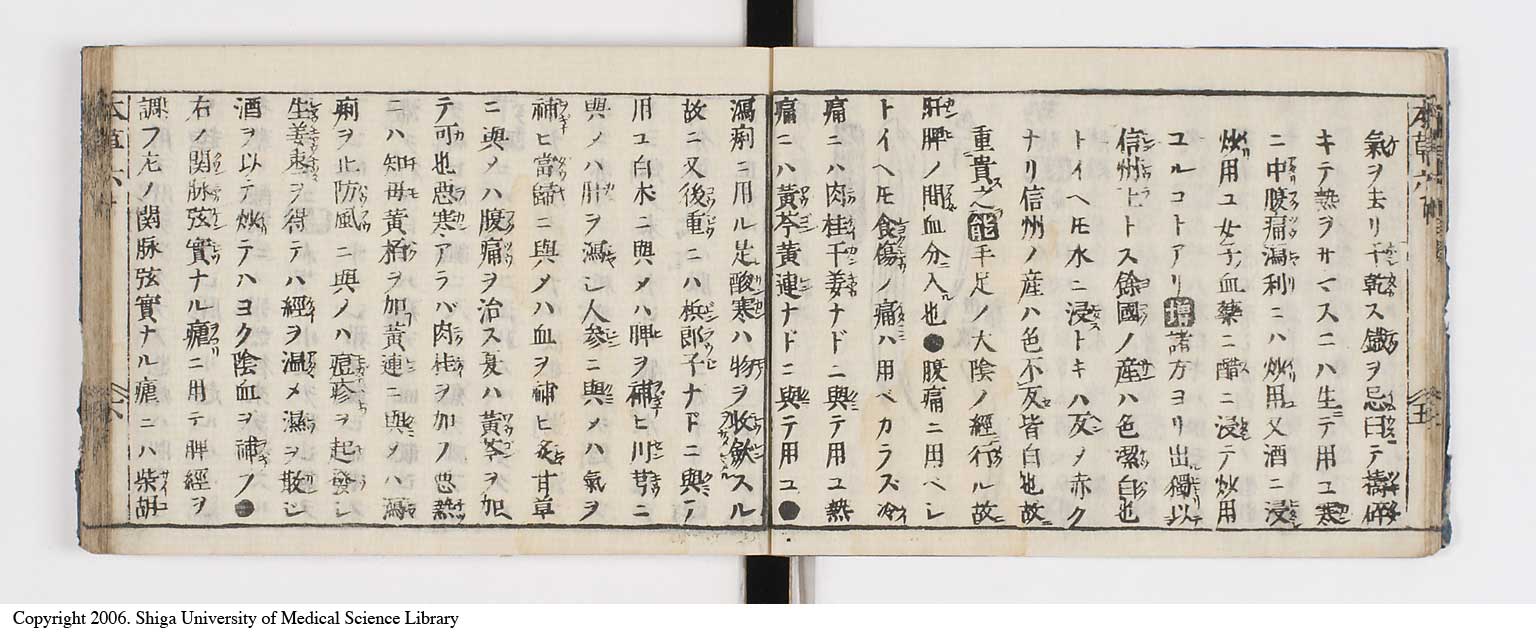 氣ヲ去リ干乾ス鐵ヲ忌臼テ擣碎
キテ熱ヲサマスニハ生ニテ用ユ寒
ニ中腹痛瀉利ニハ炒用又酒ニ浸
炒用ユ女子血藥ニ醋ニ浸テ炒用
ユルコトアリ諸方ヨリ出獨以
信州上トス餘國ノ産ハ色潔白也
トイヘ𪜈水ニ浸トキハ反メ赤ク
ナリ信州ノ産ハ色不反皆白也故
重貴之能手足ノ大陰ノ經行ル故
肝脾ノ間血分入也●腹痛ニ用ベシ
トイヘ𪜈食傷ノ痛ハ用ベカラズ冷
痛ニハ肉桂干姜ナドニ與テ用ユ熱
痛ニハ黃芩黃連ナドニ與テ用ユ●
瀉痢ニ用ル是酸寒ハ物ヲ收斂スル
故ニ又後重ニハ梹郎子ナドニ與テ
用ユ白朮ニ與メハ脾ヲ補ヒ川芎ニ
與メハ肝ヲ瀉シ人參ニ與メハ氣ヲ
補ヒ當歸ニ與メハ血ヲ補ヒ炙甘草
ニ與メハ腹痛ヲ治ス夏ハ黃芩ヲ加
テ可也惡寒アラバ肉桂ヲ加ノ惡熱
ニハ知母黃栢ヲ加黃連ニ與メハ瀉
痢ヲ止防風ニ與ノハ痘疹ヲ起發シ
生姜棗ヲ得テハ經ヲ温メ濕ヲ散シ
酒ヲ以テ炒テハヨク陰血ヲ補フ●
右ノ関脉弦實ナル瘧ニ用テ脾經ヲ
調フ左ノ関脉弦實ナル瘧ニハ柴胡
Copyright 2006. Shiga University of Medical Science Library